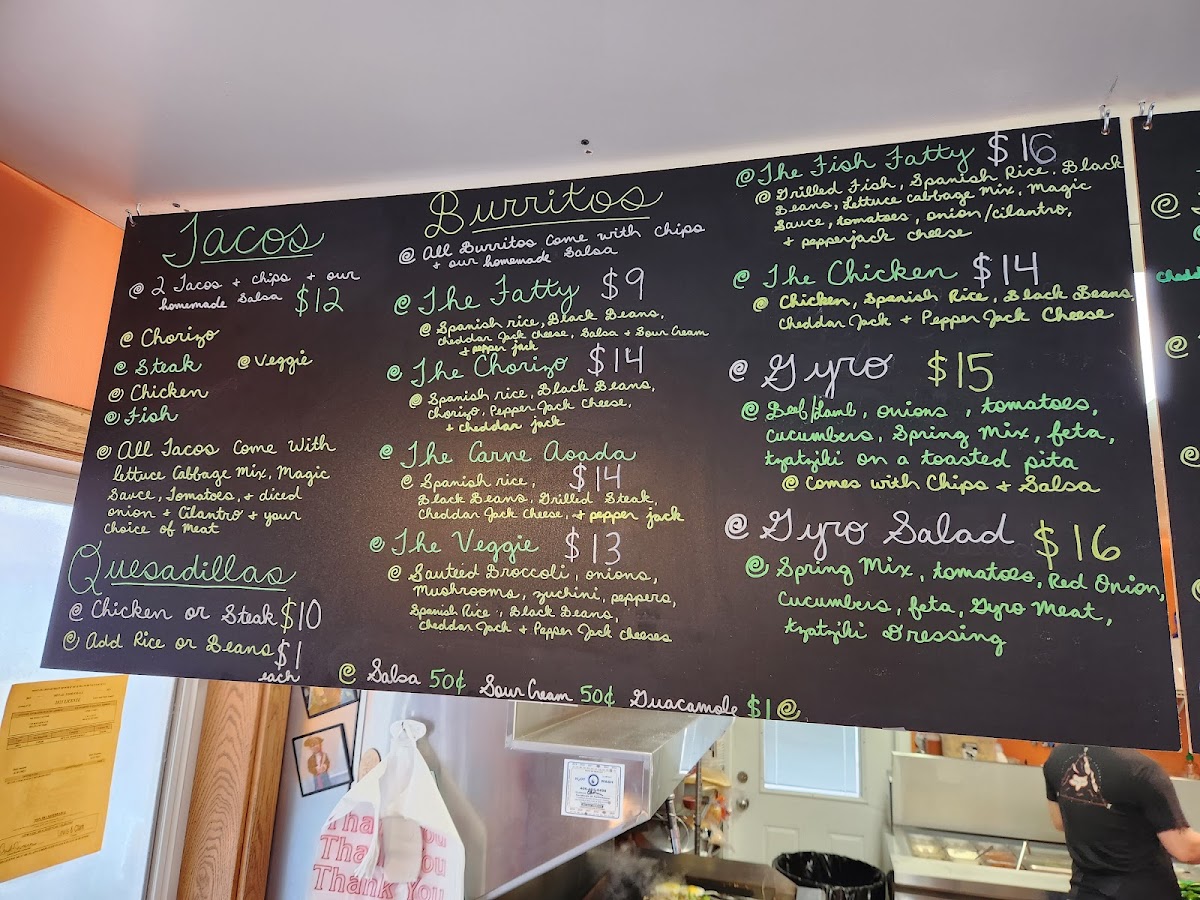 Tacos
@ 2 Tacos + chips + our
homemade Salsa $12
@ Chorizo
@ Steak @ Veggie
@ Chicken
@ Fish
@ All Tacos Come With
lettuce Cabbage Mix, Magic
Sauce, Tomatoes, + diced
onion + Cilantro + your
Choice of Meat
Quesadillas
@ Chicken or Steak $10
@ Add Rice or Beans $1
each
Burritos
@ All Burritos Come with chips
+ our homemade Salsa
@ The Fatty $9
@ Spanish rice, Black Beans,
Cheddar Jack Cheese, Salsa + Sour Cream
+ pepper jack
@ The Chorizo $14
@ Spanish rice, Black Beans,
Chorizo, Pepper Jack Cheese,
+ cheddar jack
@ The Carne Asada
@ Spanish rice, $14
Black Beans, Grilled Steak,
Cheddar Jack Cheese, + pepper jack
@ The Veggie $13
@ Sauteed Broccoli, onions,
Mushrooms, zuchini, peppers,
Spanish Rice, Black Beans,
Cheddar Jack + Pepper Jack Cheeses
@ The Fish Fatty $16
@ Grilled Fish, Spanish Rice, Black
Beans, Lettuce Cabbage Mix, Magic
Sauce, tomatoes, onion/cilantro,
+ pepperjack cheese
@ The Chicken $14
@ Chicken, Spanish Rice, Black Beans,
Cheddar Jack + Pepper Jack Cheese
@ Gyro $15
@ Beef/Lamb, onions, tomatoes,
Cucumbers, Spring Mix, feta,
tzatziki on a toasted pita
@ Comes with Chips + Salsa
@ Gyro Salad $16
@ Spring Mix, tomatoes, Red Onion,
Cucumbers, feta, Gyro Meat,
tzatziki Dressing
@ Salsa 50¢ Sour Cream 50¢ Guacamole $1 @
Chedd
Thank You
Thank You
Thank You